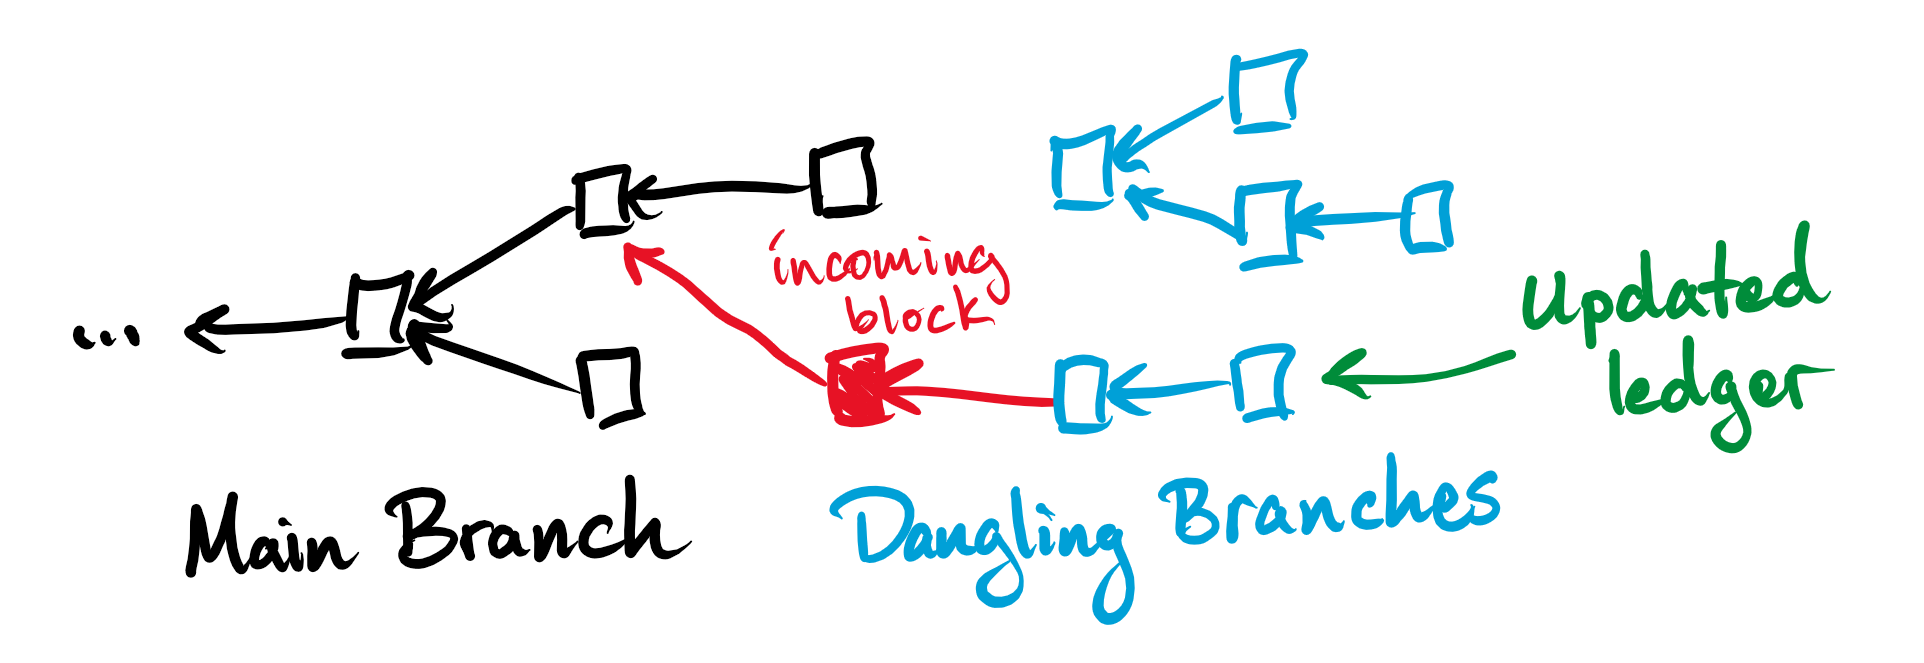 ...
incoming
block
Updated
ledger
Main Branch
Dangling Branches